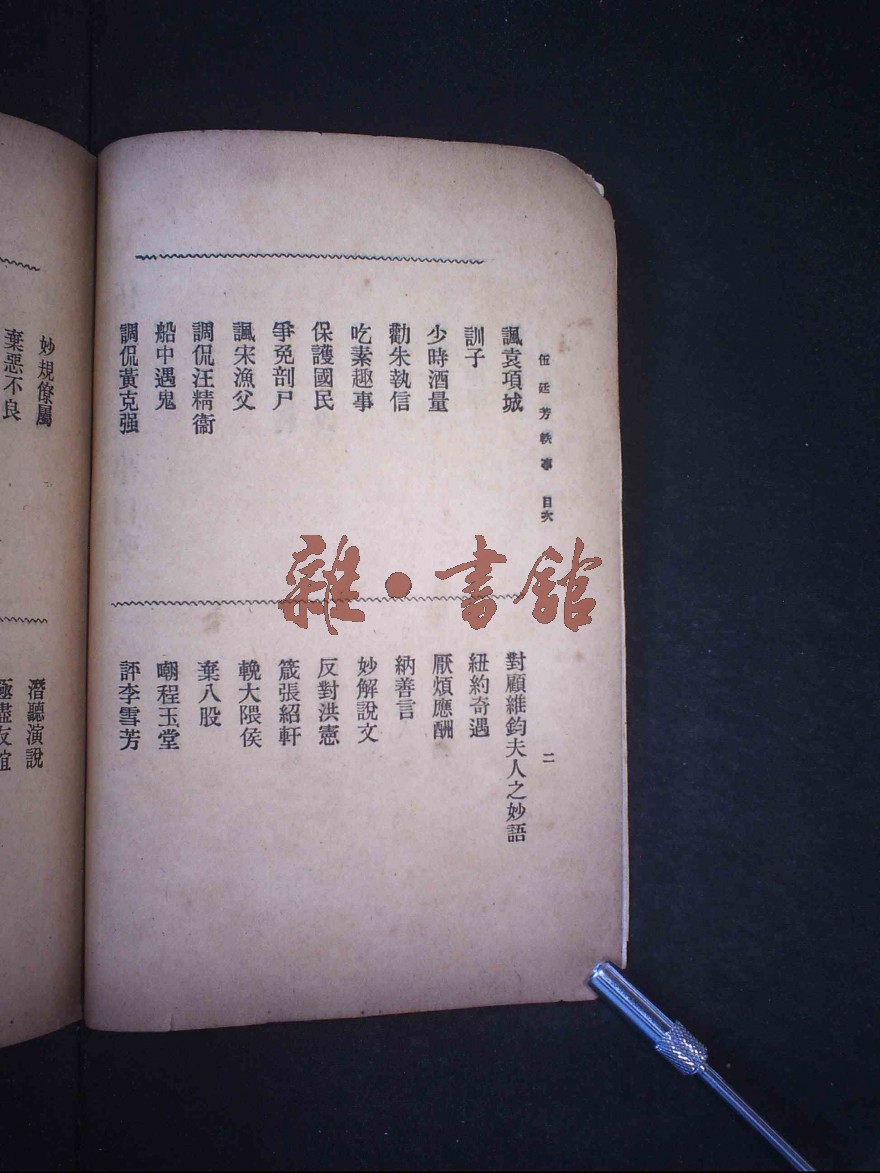 伍廷芳軼事 目次 二
諷袁項城
訓子
少時酒量
勸朱執信
吃素趣事
保護國民
爭免剖尸
諷宋漁父
調侃汪精衞
船中遇鬼
調侃黃克强
對顧維鈞夫人之妙語
紐約奇遇
厭煩應酬
納善言
妙解說文
反對洪憲
箴張紹軒
輓大隈侯
棄八股
嘲程玉堂
評李雪芳
妙規僚屬
棄惡不良
潛聽演說
極盡友誼
雜·書館